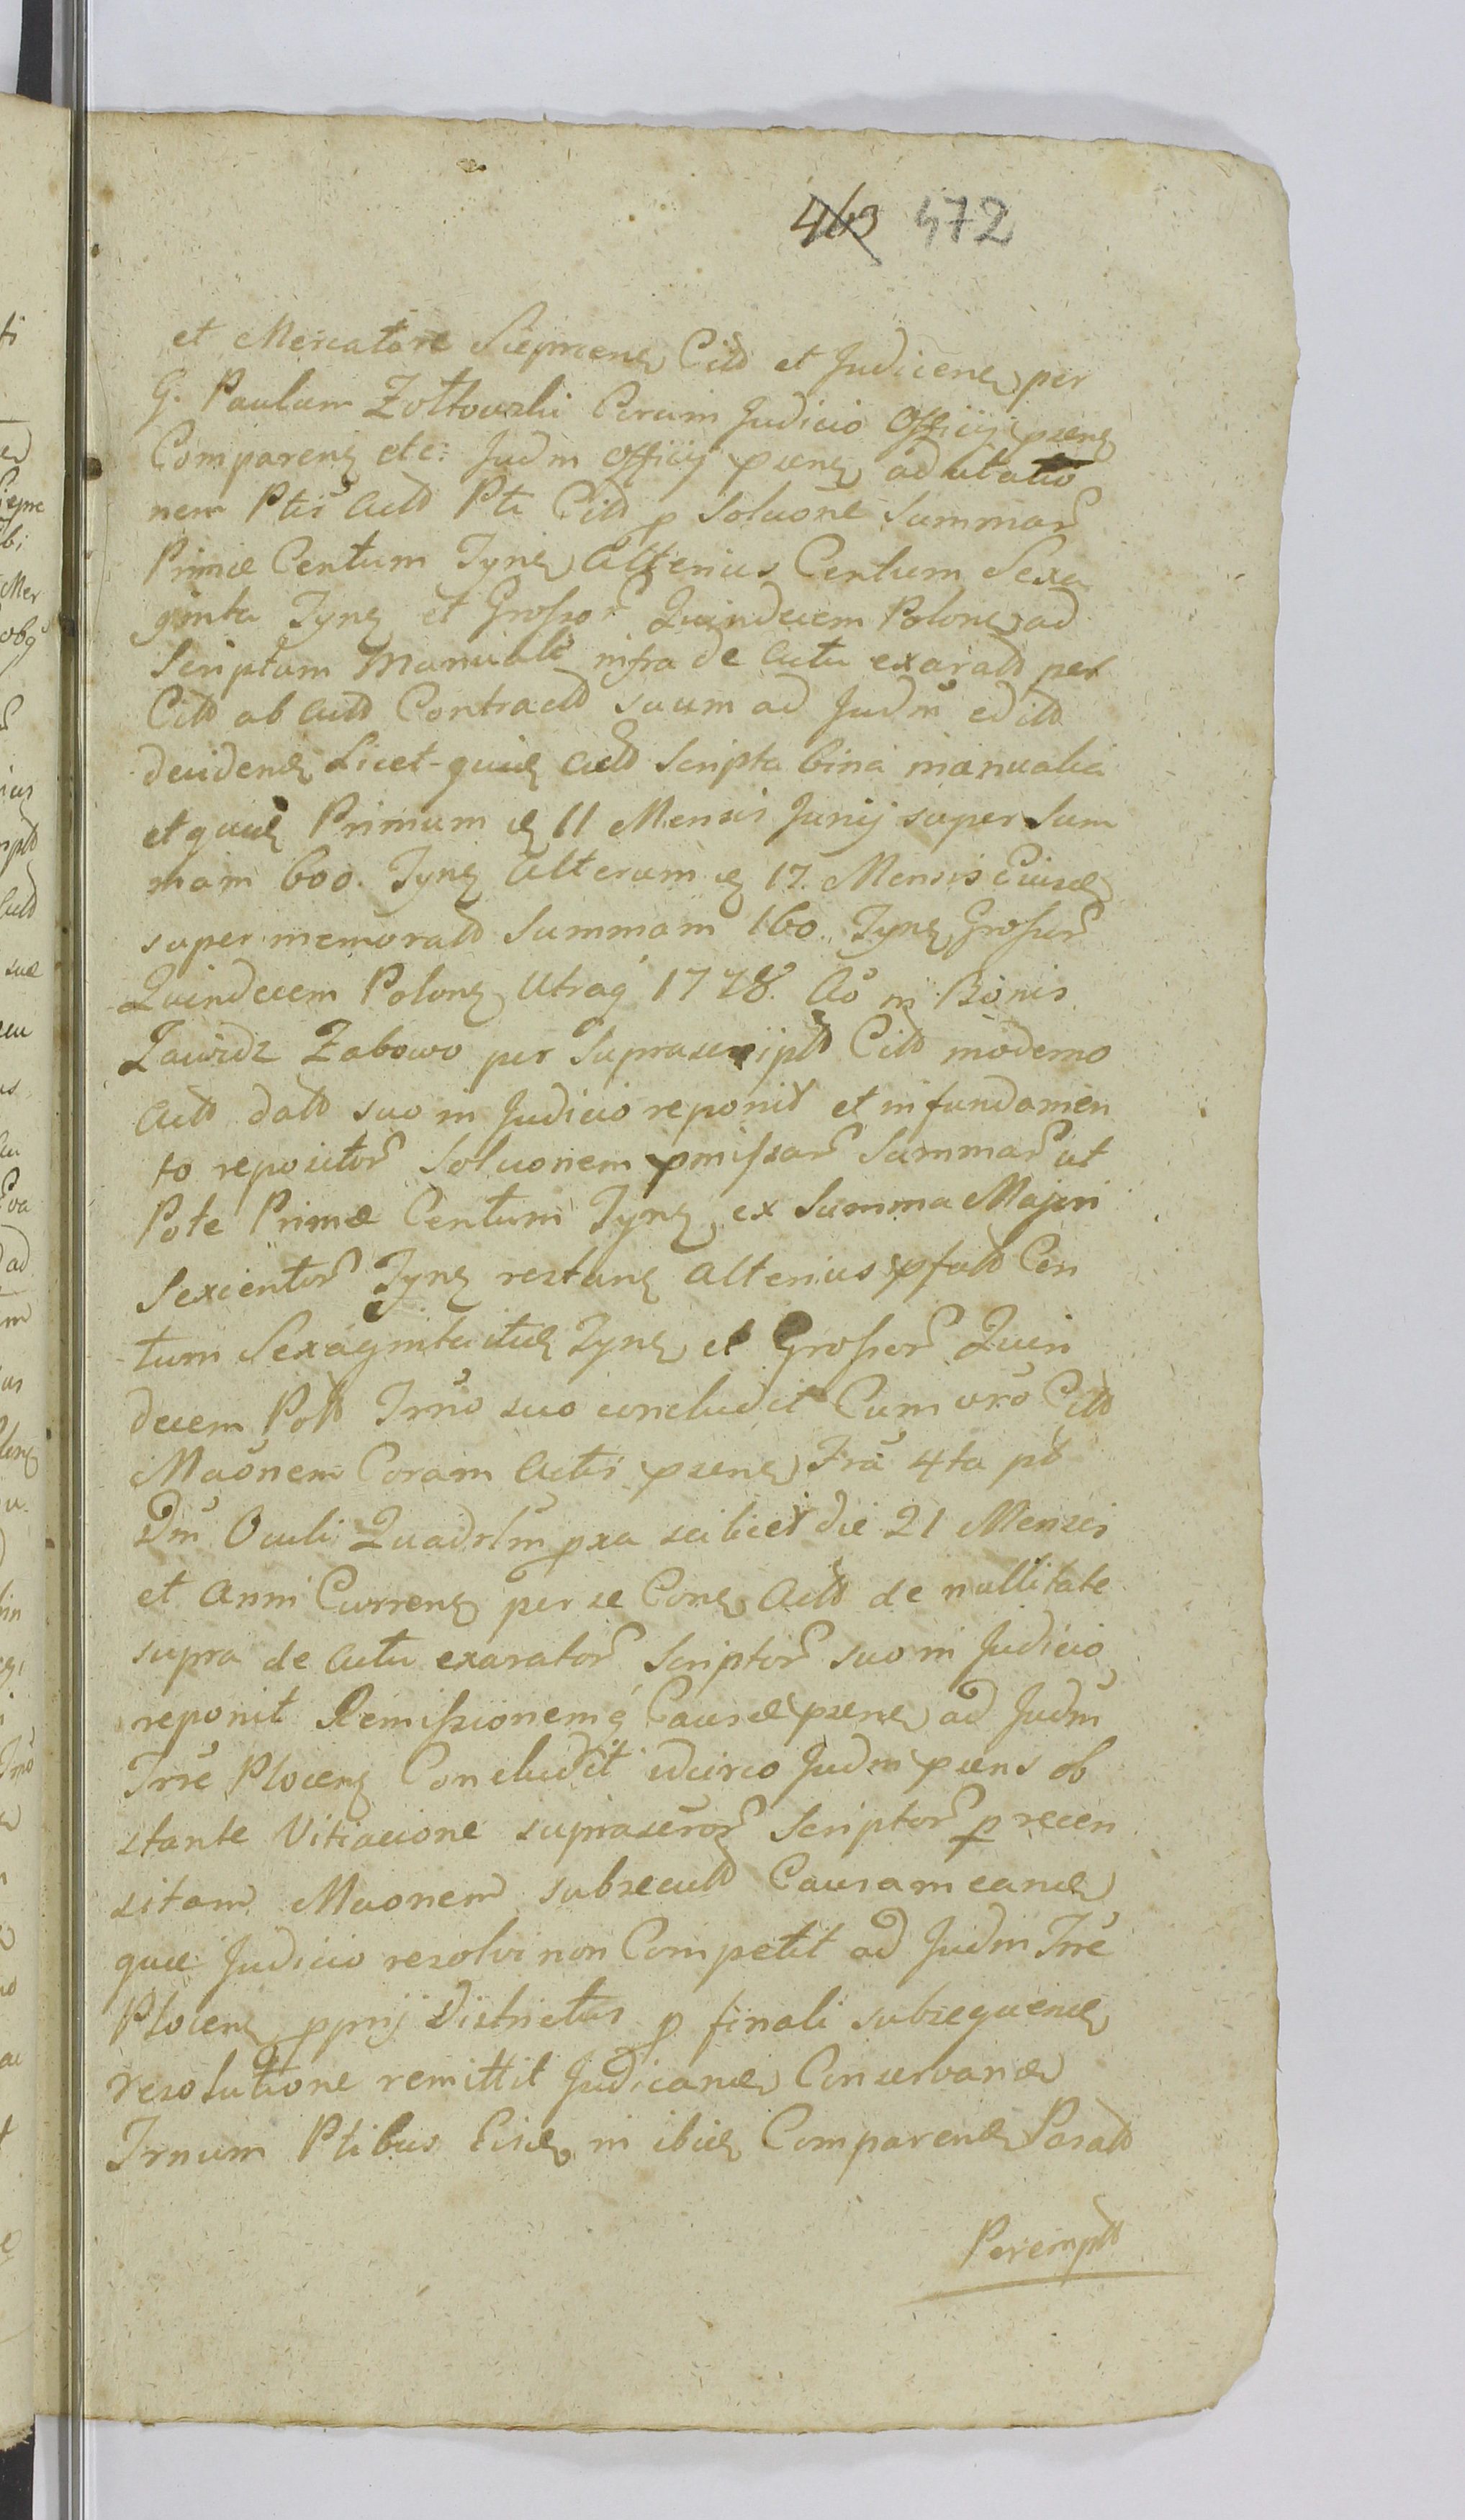 463 472
et Mercatore Sieprcens Citt et Judicens per
G. Paulum Zołtowski Coram Judicio Officij psens
Comparens etc: Judm Officij psens ad citatio
nem Ptis Actt Pti Citt p Soluone Summar
Primæ Centum Tyns Alterius Centum Sexa
ginta Tyns et Grossor Quindecem Polons ad
Scriptum Manuale infra de Actu exaratt per
Citt ab Actt Contractt suum ad Judm editt
devidens Licet quid Actt Scripta bina manualia
et quid Primum d 11 Mensis Junij super Sum
mam 600. Tyns Alterum d 17. Mensis Eiusd
super memoratt Summam 160. Tyns Grossor
Quindecem Polons Utraq 1778. Ao in Bonis
Zawidz Zabowo per Suprascriptt Citt moderno
Actt datt suo in Judicio reponit et in fundamen
to repositor Soluonem pmissar Summar ut
Pote Primæ Centum Tyns ex Summa Majori
Sexcentor Tyns restans Alterius pfatt Cen
tum Sexaginta itid Tyns et Grossor Quin
decem Poltt Trno suo concludit Cum vro Citt
Maonem Coram Actis psens Fra 4ta pt
Dm Oculi Quadrlm pxa scilicet die 21 Mensis
et Anni Currens per se Cons Actt de nullitate
supra de Actu exarator Scriptor suo in Judicio
reponit Remissionemq Causæ psens ad Judm
Trre Plocens Concludit idcirco Judm psens ob
stante Vitiacione suprascror Scriptor p recen
sitam Maonem subsecutt Causam eand
quæ Judicio resolvi non Competit ad Judm Trre
Plocens pprij Districtus p finali subsequend
resolutione remittit Judicand Conservand
Trnum Ptibus Eisd in ibid Comparend Paratt
Peremptt